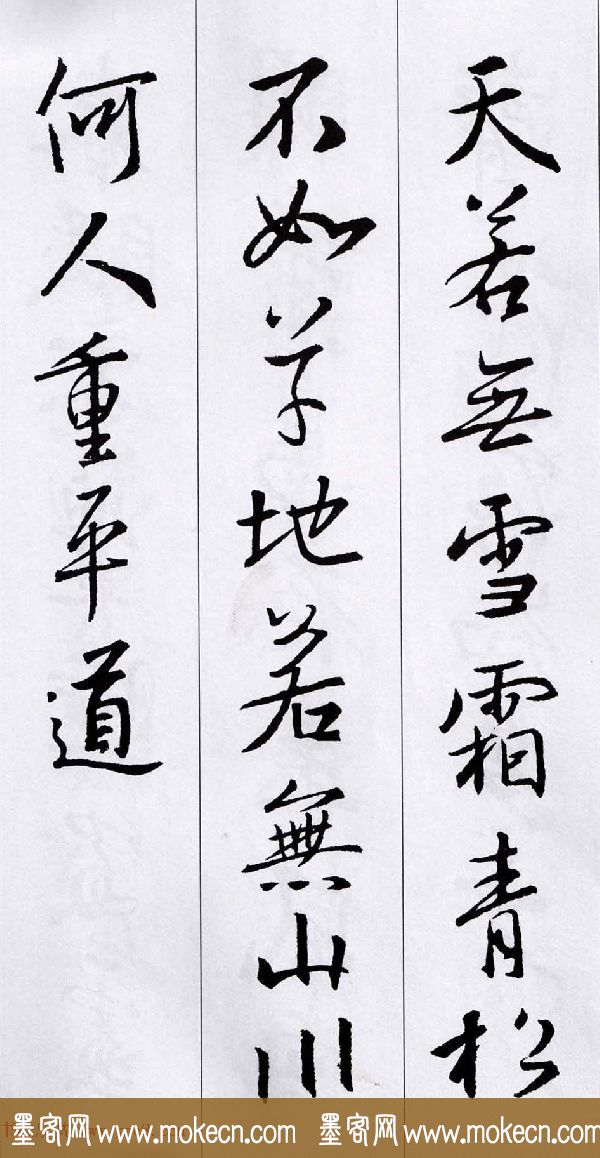 天若無雪霜青松
不如草地若無山川
何人重平道
墨客网 www.mokecn.com 墨客网 www.mokecn.com